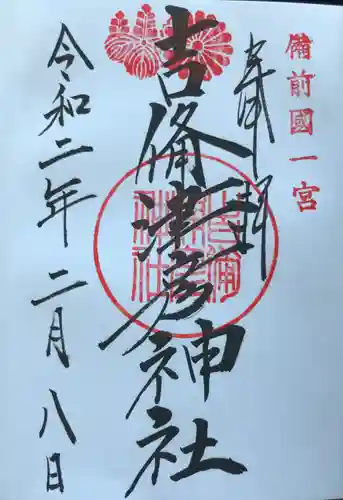 備前國一宮
奉拝
吉備津彦神社
令和二年二月八日